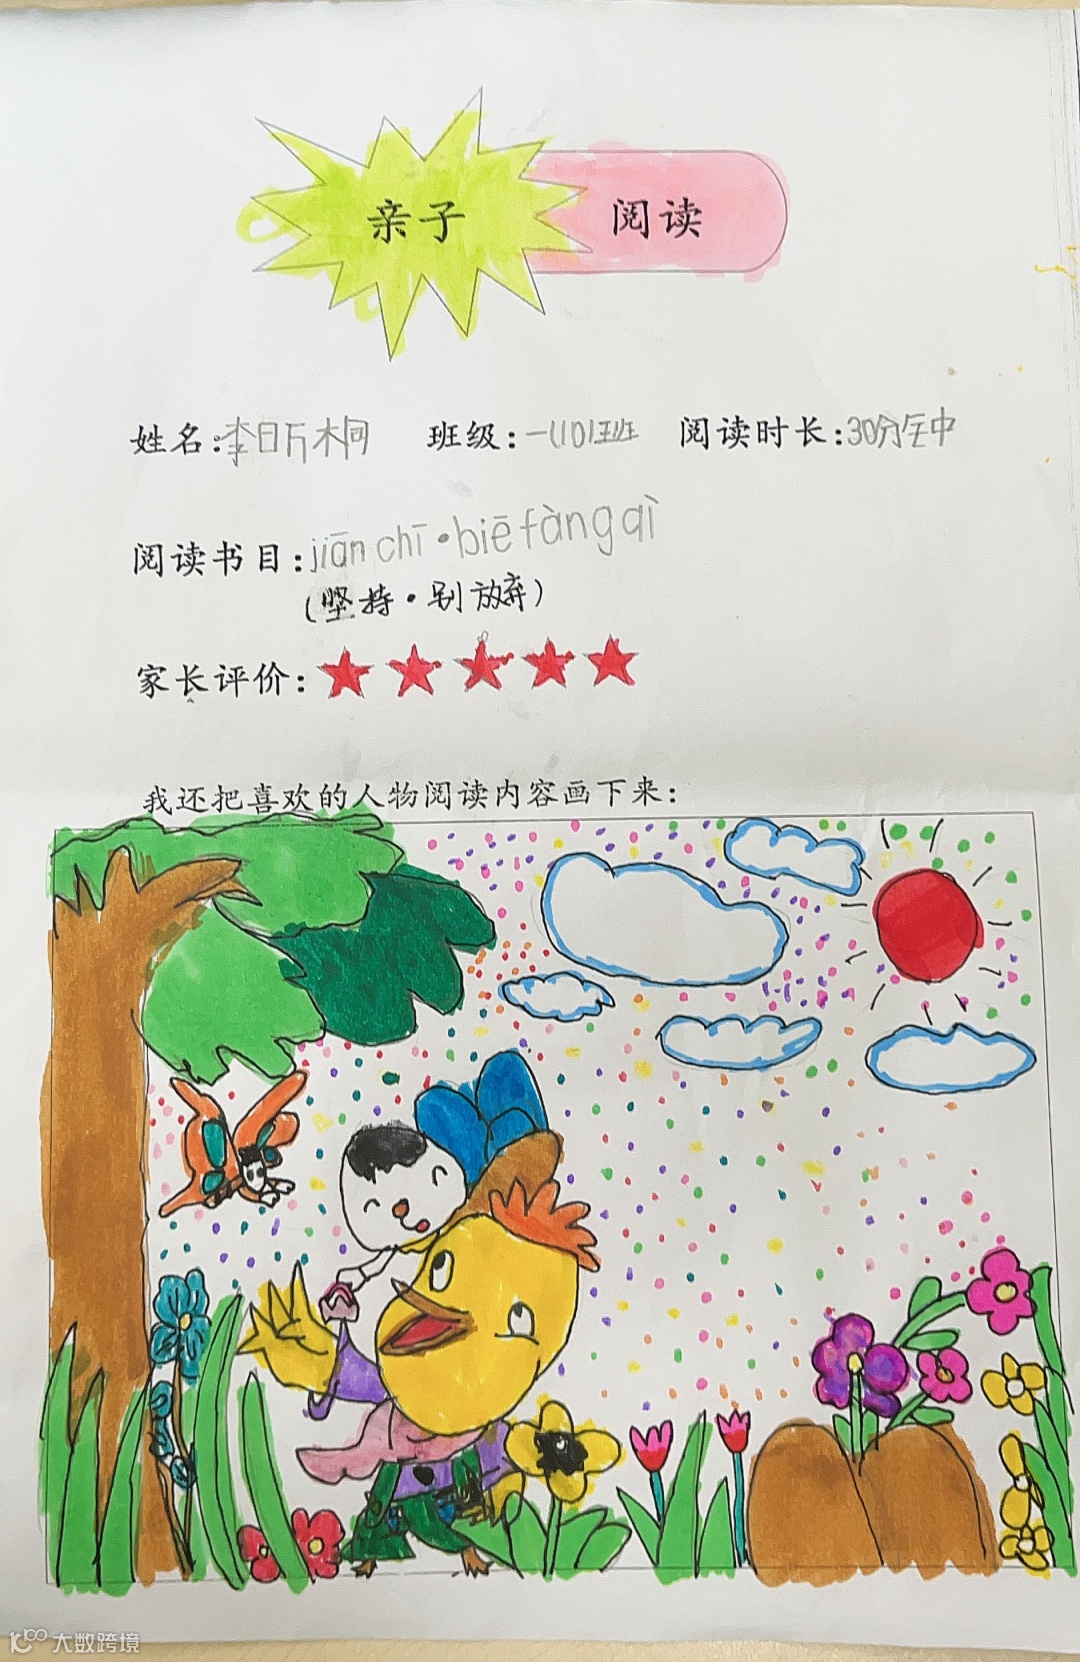 亲子 阅读
姓名:李昕桐 班级:一(10)班 阅读时长:30分钟
阅读书目:jiān chī·biē fàng qì
(坚持·别放弃)
家长评价:
我还把喜欢的人物阅读内容画下来:
大数跨境